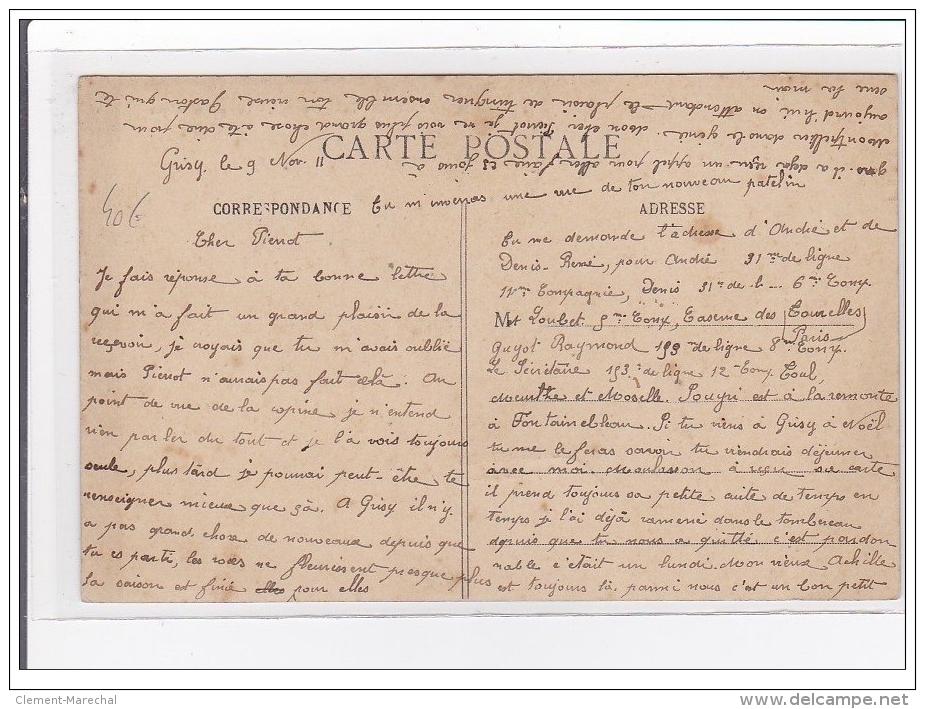 CARTE POSTALE
Grisy, le 9 Nov. 11
40€
CORRESPONDANCE
ADRESSE
Cher Pierrot.
Je fais réponse à ta bonne lettre
qui m'a fait un grand plaisir de la
reçevoir, je croyais que tu m'avais oublié
mais Pierrot n'aurais pas fait çelà. Au
point de vue de la copine je n'entend
rien parler du tout et je la vois toujours
seule, plus tard je pouvai peut-être te
renseigner mieux que çà. A Grisy il n'y
a pas grand chose de nouveaux depuis que
tu es parti, les roses ne fleurissent presque plus
la saison et finie elles pour elles
Tu me demande l'adresse d'André et de
Denis-René, pour André 31me de ligne
11me Compagnie, Denis 31e de l... 6me Comp.
M Loubet 5me Comp, Caserne des Tourelles
Paris
Guyot Raymond 153me de ligne 8me Comp.
Le Sénétaire 153e de ligne 12e Comp. Toul,
Meurthe et Moselle. Pougri est à la remonte
à Fontainebleau. Si tu viens à Grisy à Noël
tu me le feras savoir tu viendrais déjeuner
avec moi. Maulasson à reçu sa carte
il prend toujours sa petite cuite de temps en
temps je l'ai déjà ramené dans le tombereau
depuis que tu nous a quitté c'est pardon
nable c'était un lundi. Mon vieux Achille
est toujours là, parmi nous c'est un bon petit
gas. il a déjà reçu un appel pour aller faire 25 jours à
Montpellier dans le génie. Mon cher Pierrot je ne vois plus grand chose à te dire pour
aujourd'hui en attendant le plaisir de trinquer ensemble ton vieux Gaston qui te
serre la main
Tu m'inverras une vue de ton nouveau patelin
Clement-Marechal
www.delcampe.net